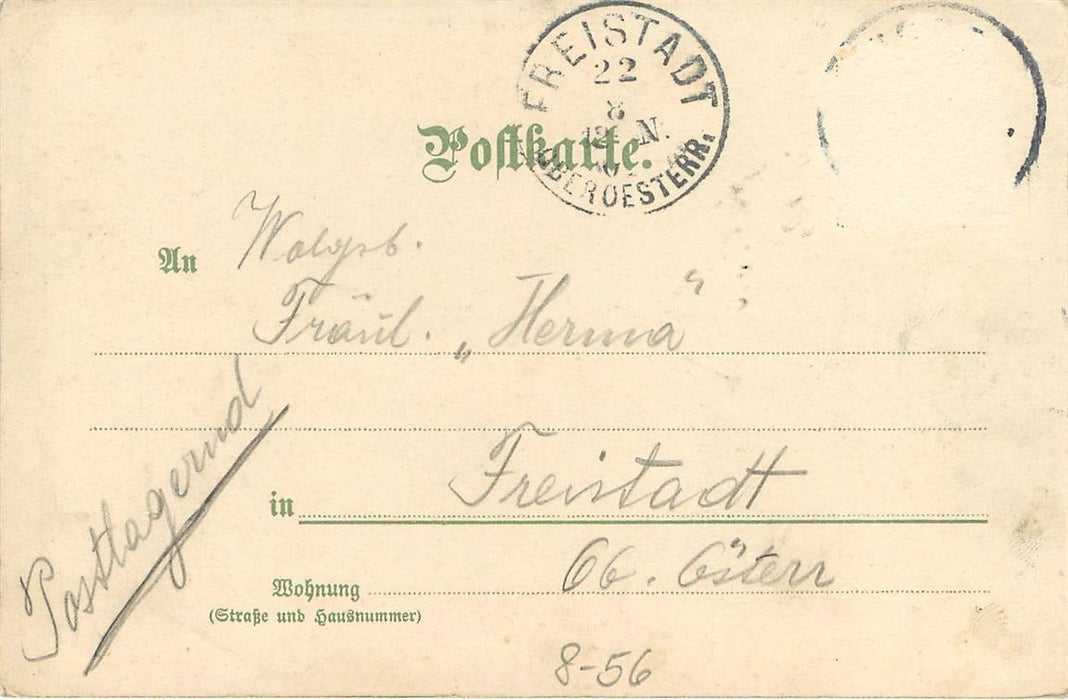 FREISTADT
22
8
12 N.
OBEROESTERR.
Postkarte.
An Wolgeb.
Fräul. „Herma“
in Freistadt
Ob. Österr
Wohnung
(Straße und Hausnummer)
Postlagernd
8-56